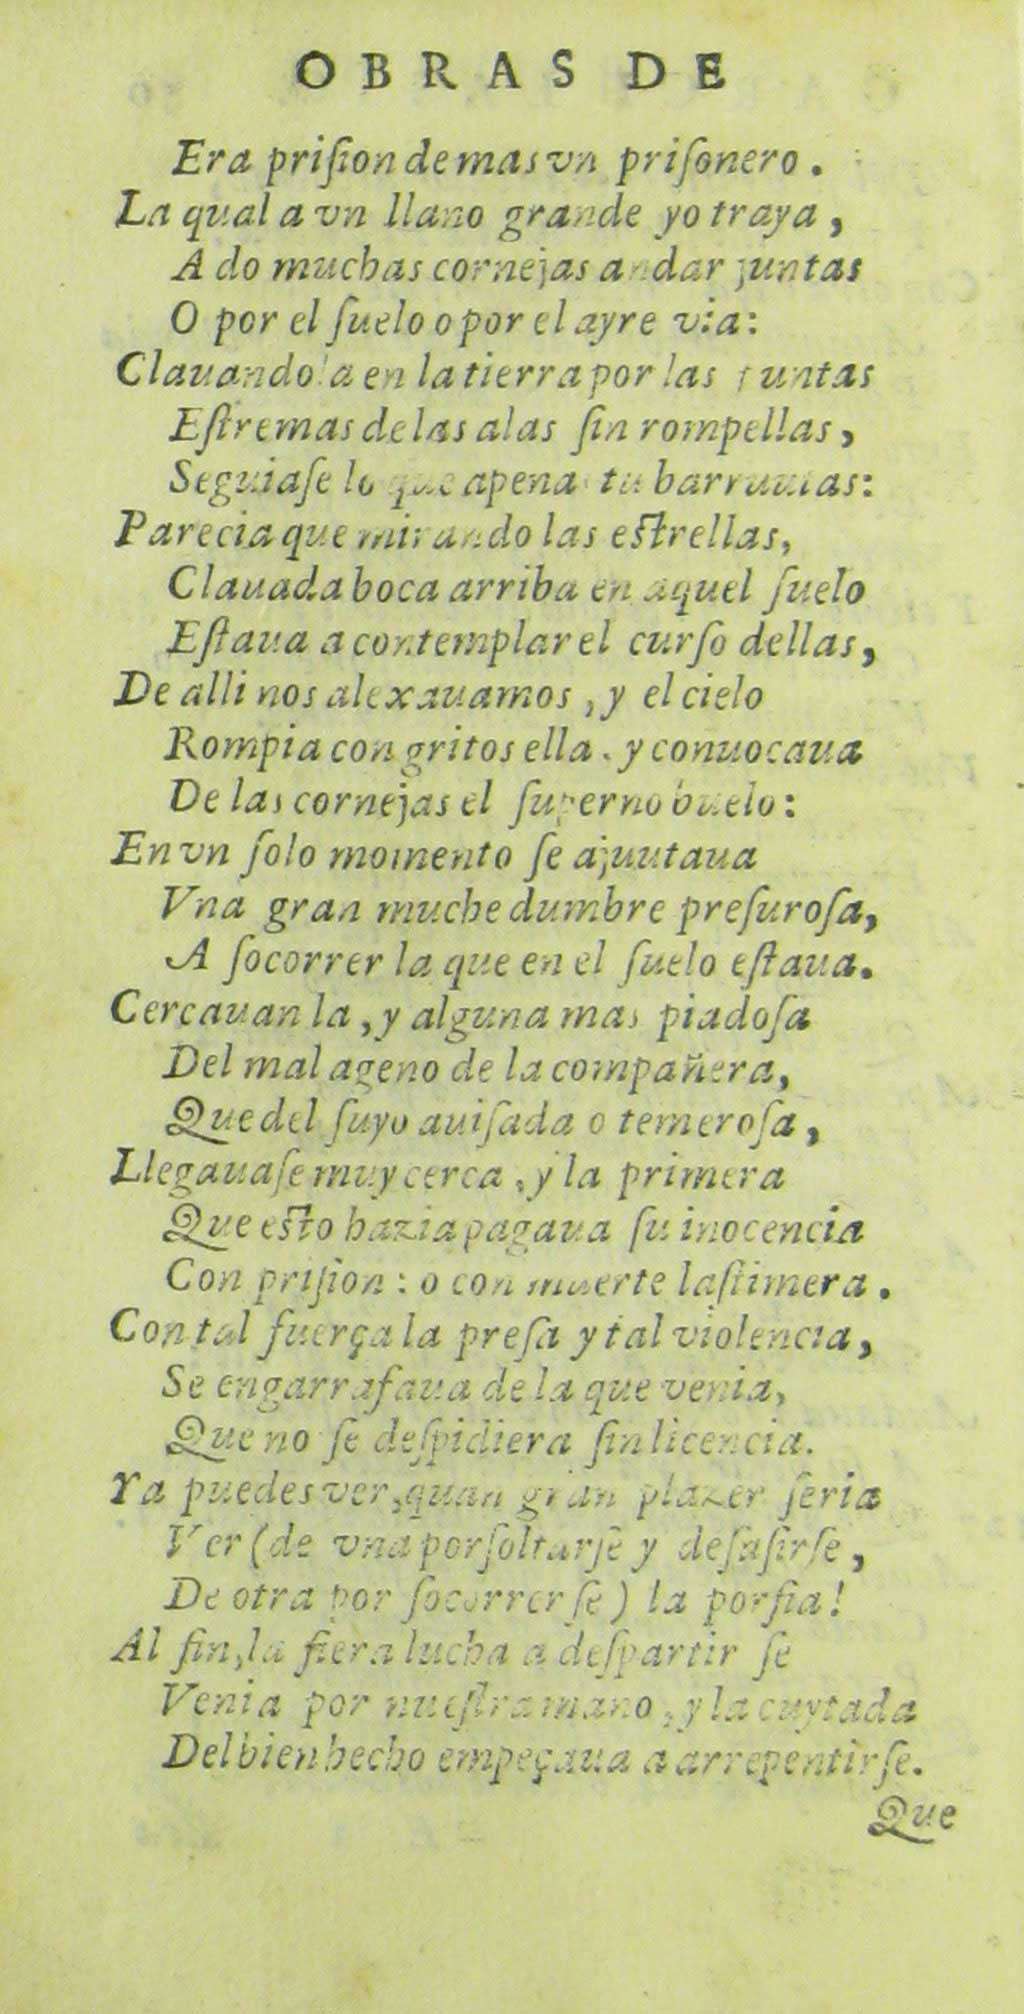 OBRAS DE
Era prision de mas vn prisonero.
La qual a vn llano grande yo traya,
A do muchas cornejas andar juntas
O por el suelo o por el ayre via:
Clauandola en la tierra por las puntas
Estremas de las alas sin rompellas,
Seguiase lo que apena tu barruntas:
Parecia que mirando las estrellas,
Clauada boca arriba en aquel suelo
Estaua a contemplar el curso dellas,
De alli nos alexauamos, y el cielo
Rompia con gritos ella. y conuocaua
De las cornejas el superno buelo:
En vn solo momento se ajuutaua
Vna gran muchedumbre presurosa,
A socorrer la que en el suelo estaua.
Cercauan la, y alguna mas piadosa
Del mal ageno de la compañera,
Que del suyo auisada o temerosa,
Llegauase muy cerca, y la primera
Que esto hazia pagaua su inocencia
Con prision: o con muerte lastimera.
Con tal fuerça la presa y tal violencia,
Se engarrafaua de la que venia,
Que no se despidiera sin licencia.
Ya puedes ver, quan gran plazer seria
Ver (de vna por soltarse y desasirse,
De otra por socorrerse) la porfia!
Al fin, la fiera lucha a despartir se
Venia por nuestra mano, y la cuytada
Del bien hecho empeçaua a arrepentirse.
Que